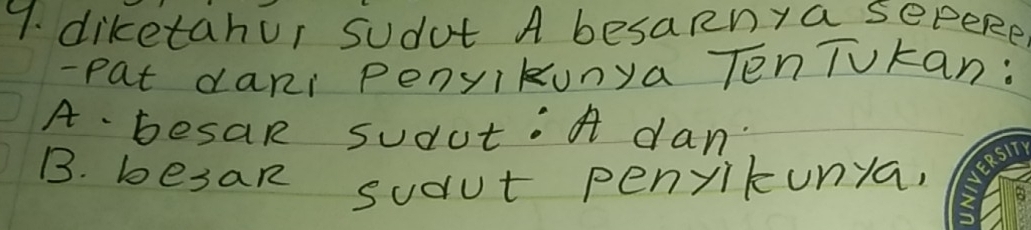 9. diketahui sudut A besarnya sepere
-pat dari Penyikunya TenTukan:
A. besar sudut: A dan
B. besar sudut penyikunya,
UNIVERSITY